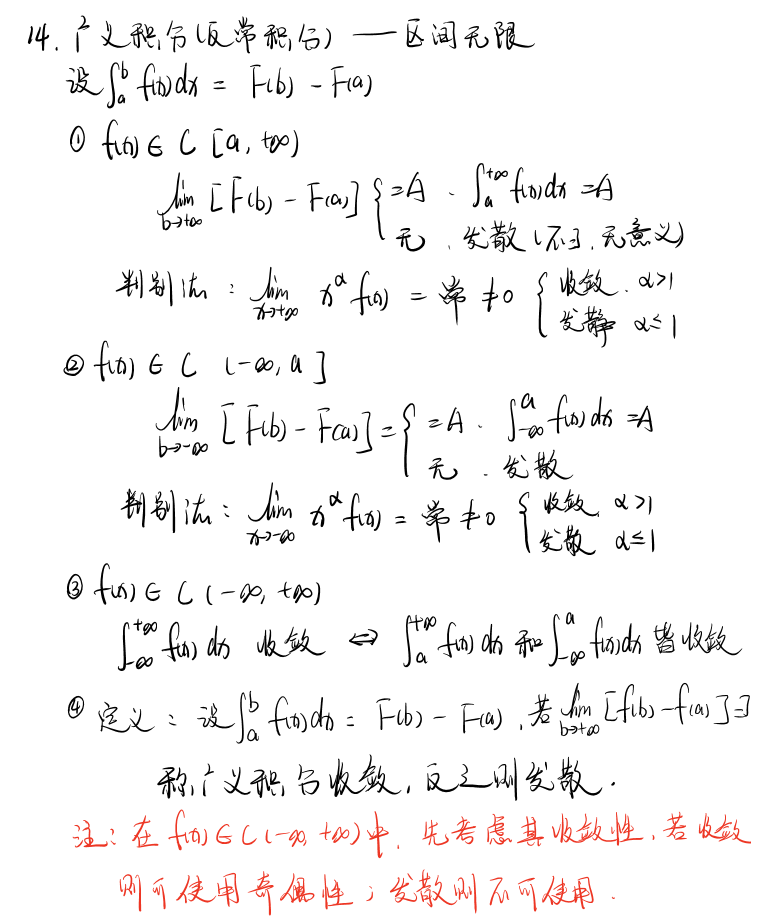 14. 广义积分(反常积分) —— 区间无限
设∫_a^b f(x)dx = F(b) - F(a)
① f(x) ∈ C [a, +∞)
lim_{b→+∞} [F(b) - F(a)] { =A . ∫_a^{+∞} f(x)dx = A
无 . 发散 (不∃, 无意义)
判别法 : lim_{x→+∞} x^α f(x) = 常 ≠ 0 { 收敛 . α>1
发散 α≤1
② f(x) ∈ C (-∞, a]
lim_{b→-∞} [F(b) - F(a)] = { =A . ∫_{-∞}^a f(x)dx = A
无 . 发散
判别法 : lim_{x→-∞} x^α f(x) = 常 ≠ 0 { 收敛 α>1
发散 α≤1
③ f(x) ∈ C (-∞, +∞)
∫_{-∞}^{+∞} f(x) dx 收敛 ⇔ ∫_a^{+∞} f(x) dx 和 ∫_{-∞}^a f(x)dx 皆收敛
④ 定义 : 设∫_a^b f(x)dx = F(b) - F(a) , 若 lim_{b→+∞} [f(b) - f(a)] ∃
称广义积分收敛, 反之则发散 .
注 : 在 f(x) ∈ C (-∞, +∞) 中, 先考虑其收敛性, 若收敛
则可使用奇偶性 ; 发散则不可使用 .